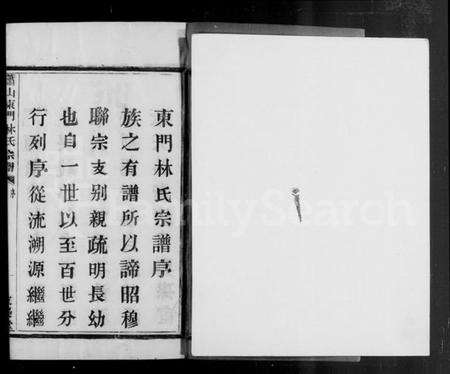 東門林氏宗譜序
族之有譜所以諦昭穆
聯宗支别親疏明長幼
也自一世以至百世分
行列序從流溯源繼繼
山東門林氏宗譜
序
FamilySearch